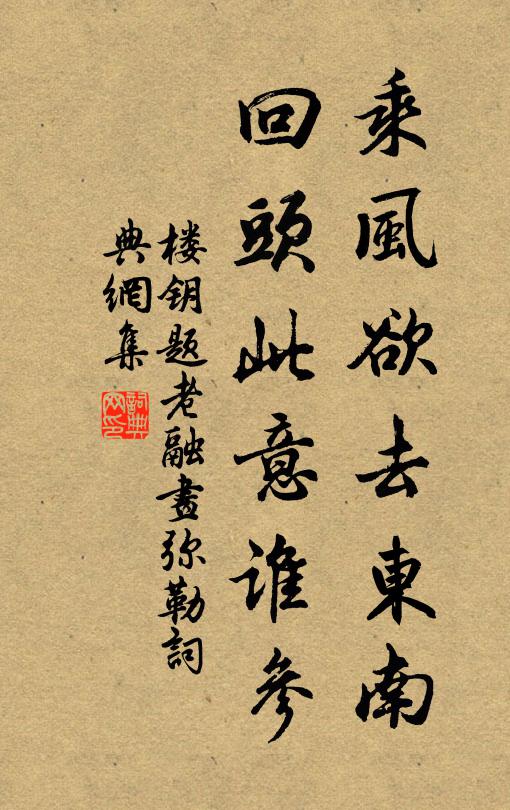 乘風欲去東南
回頭此意誰參
楼钥题老融畫弥勒詞
典網集
詞典
网印